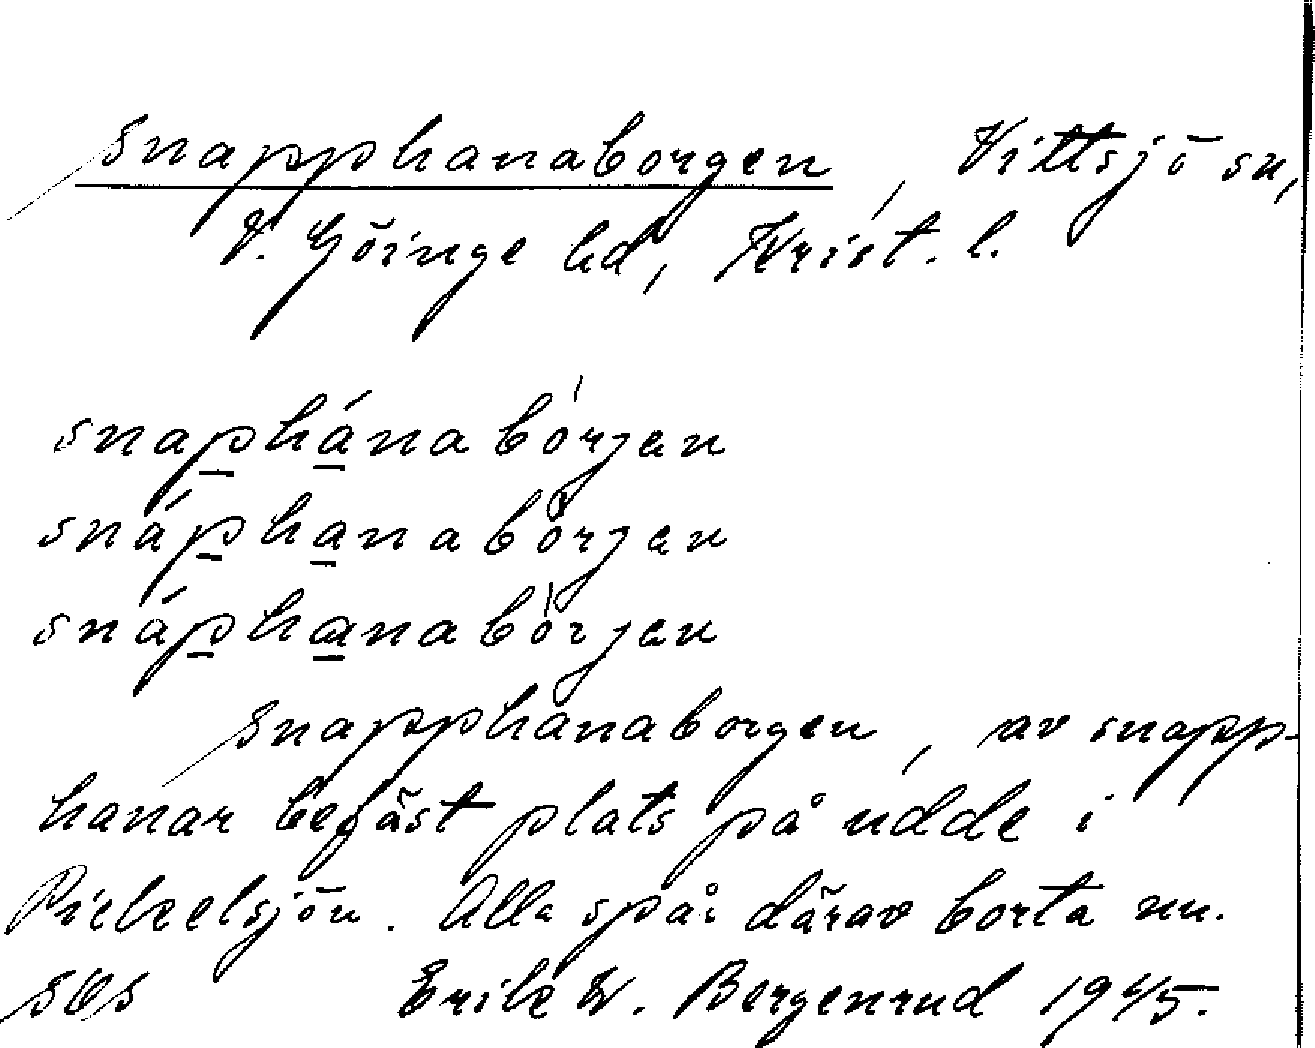 Snapphanaborgen, Vittsjö sn,
V. Göinge hd, Krist. l.
snaphánabórjen
snáphanabòrjen
snáphanabòrjen
Snapphanaborgen, av snapp-
hanar befäst plats på udde i
Pickelsjön. Alla spår därav borta nu.
SOS Erik W. Bergenrud 1945.